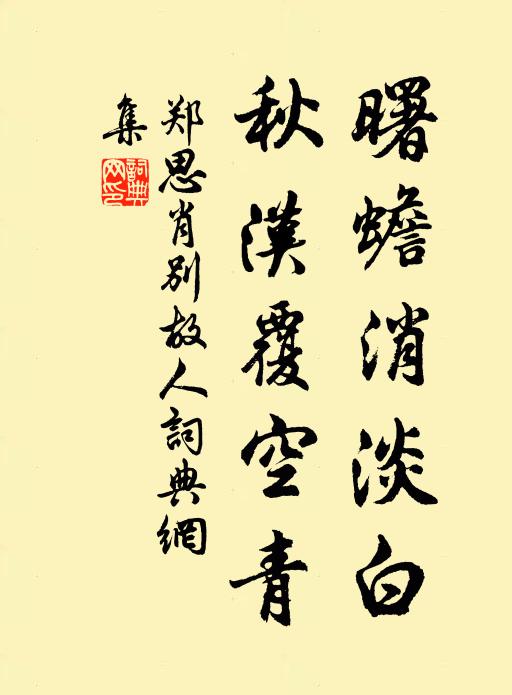 曙蟾消淡白
秋漢覆空青
郑思肖别故人詞典網
集
詞典
网